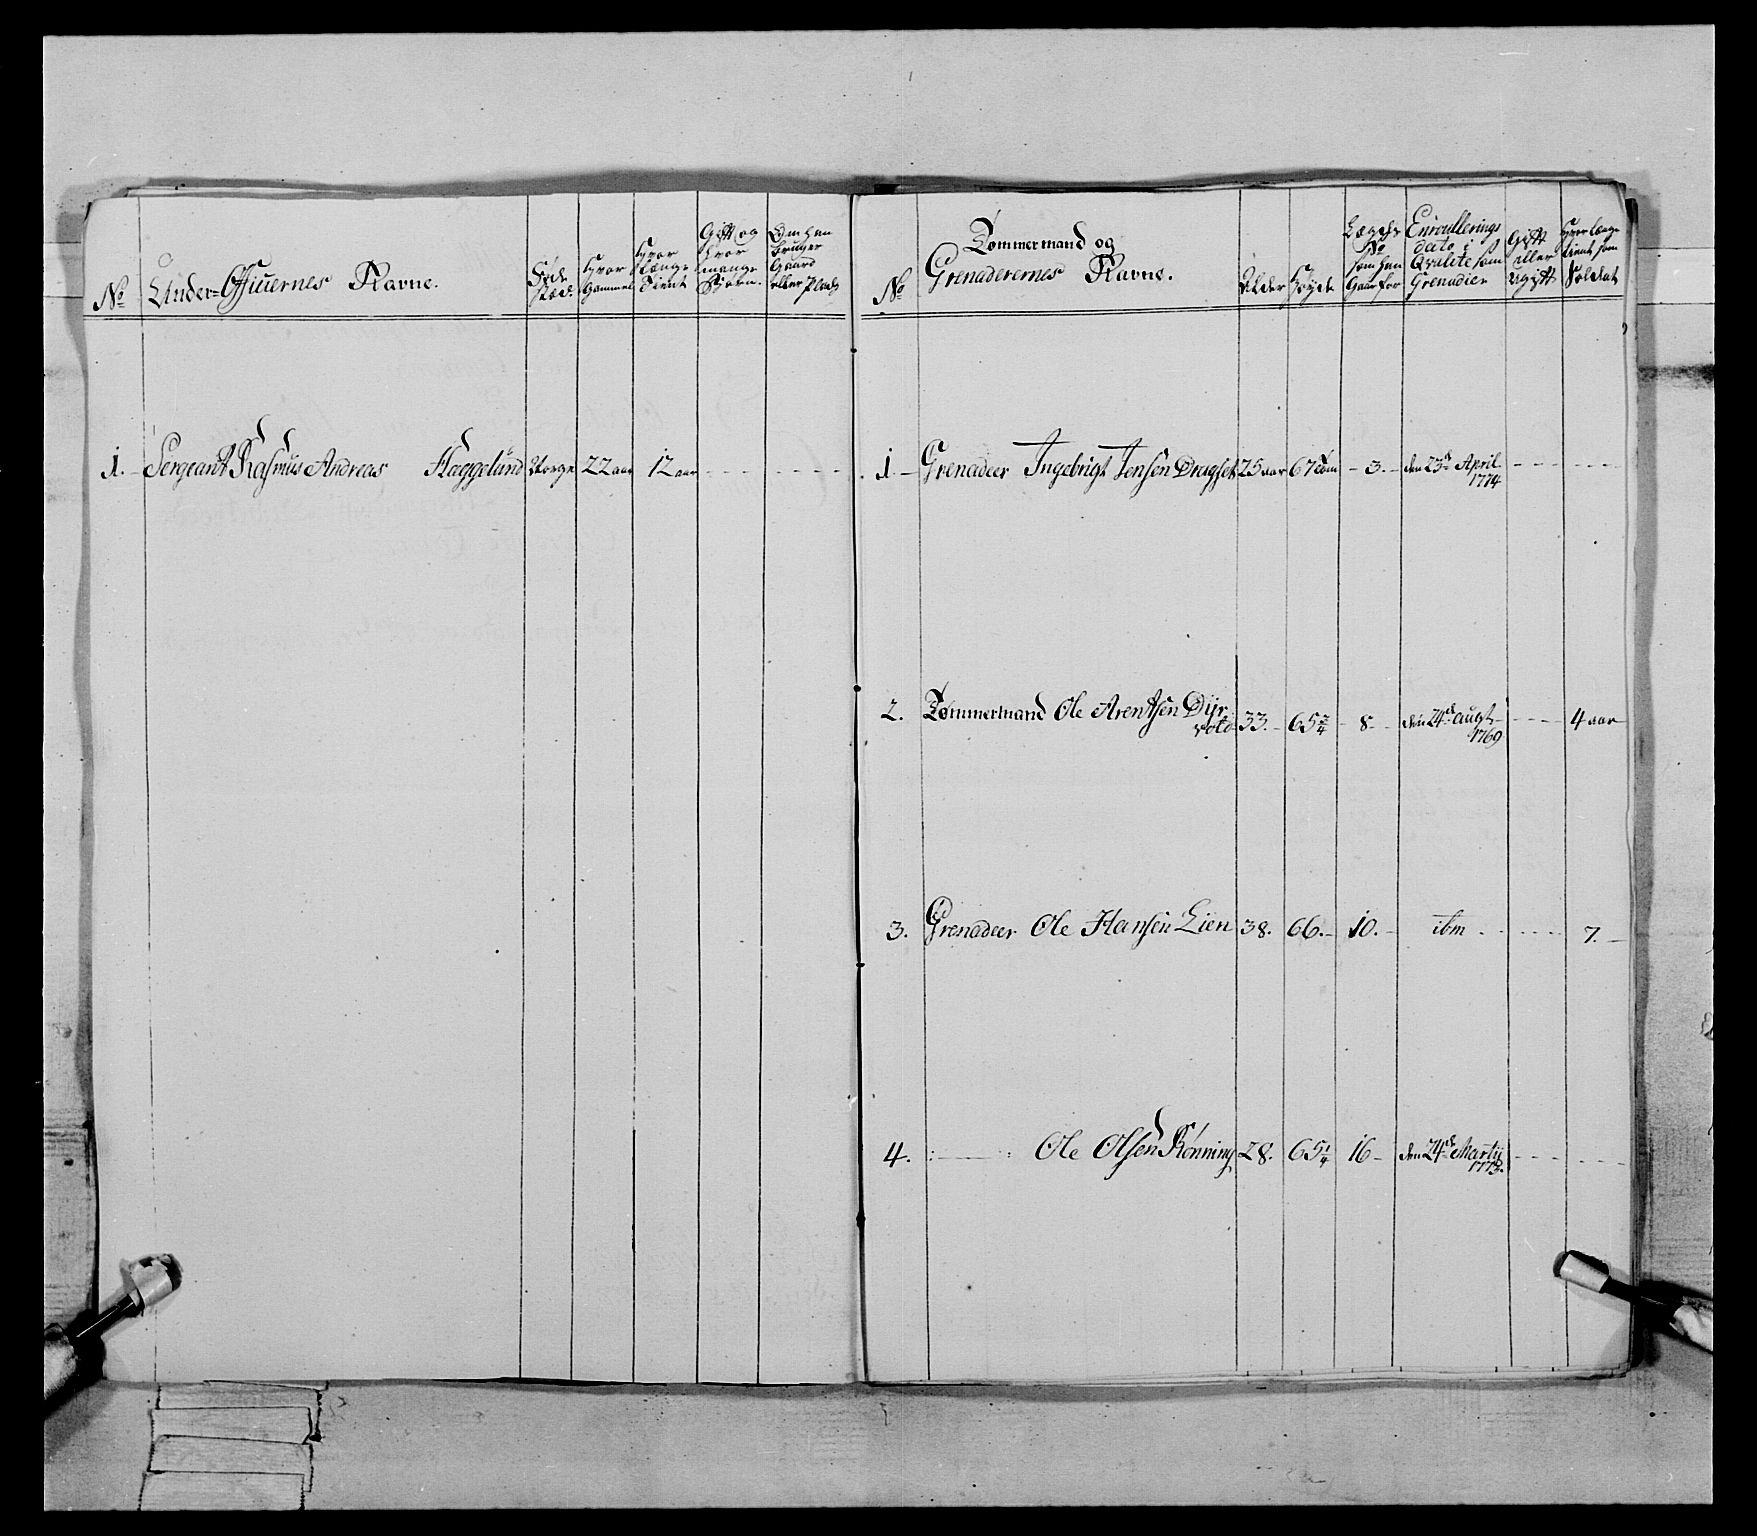 No
Under-Officierernes Navne.
Føde
stæd.
hvor
Gammel
hvor
længe
Tient
Gift og
hvor
mange
Børn.
Om han
bruger
Gaard
eller Plads
1. Sergeant Rasmus Andreas Haggelund Norge 22 aar 12 aar
No
Tømmermænd og
Grenaderernes Navne.
Alder
Høyde
Lægds
No
som han
Gaar for
Enroullerings
dato i
Qvalite som
Grenadier
Gift
eller
Ugift
Hvor længe
tient som
Soldat
1 Grenadeer Ingebrigt Jensen Dragset 25 aar 67 Tom 3. den 23de April
1774
2. Tømmermand Ole Arentsen Dyr
vold 33. 65 3/4 8 den 24de Augt
1769 4 aar
3. Grenadeer Ole Hansen Lien 38. 66. 10. ibm 7.
4. Ole Olsen Rønning 28. 65 1/4 16 den 24de Martij
1773.